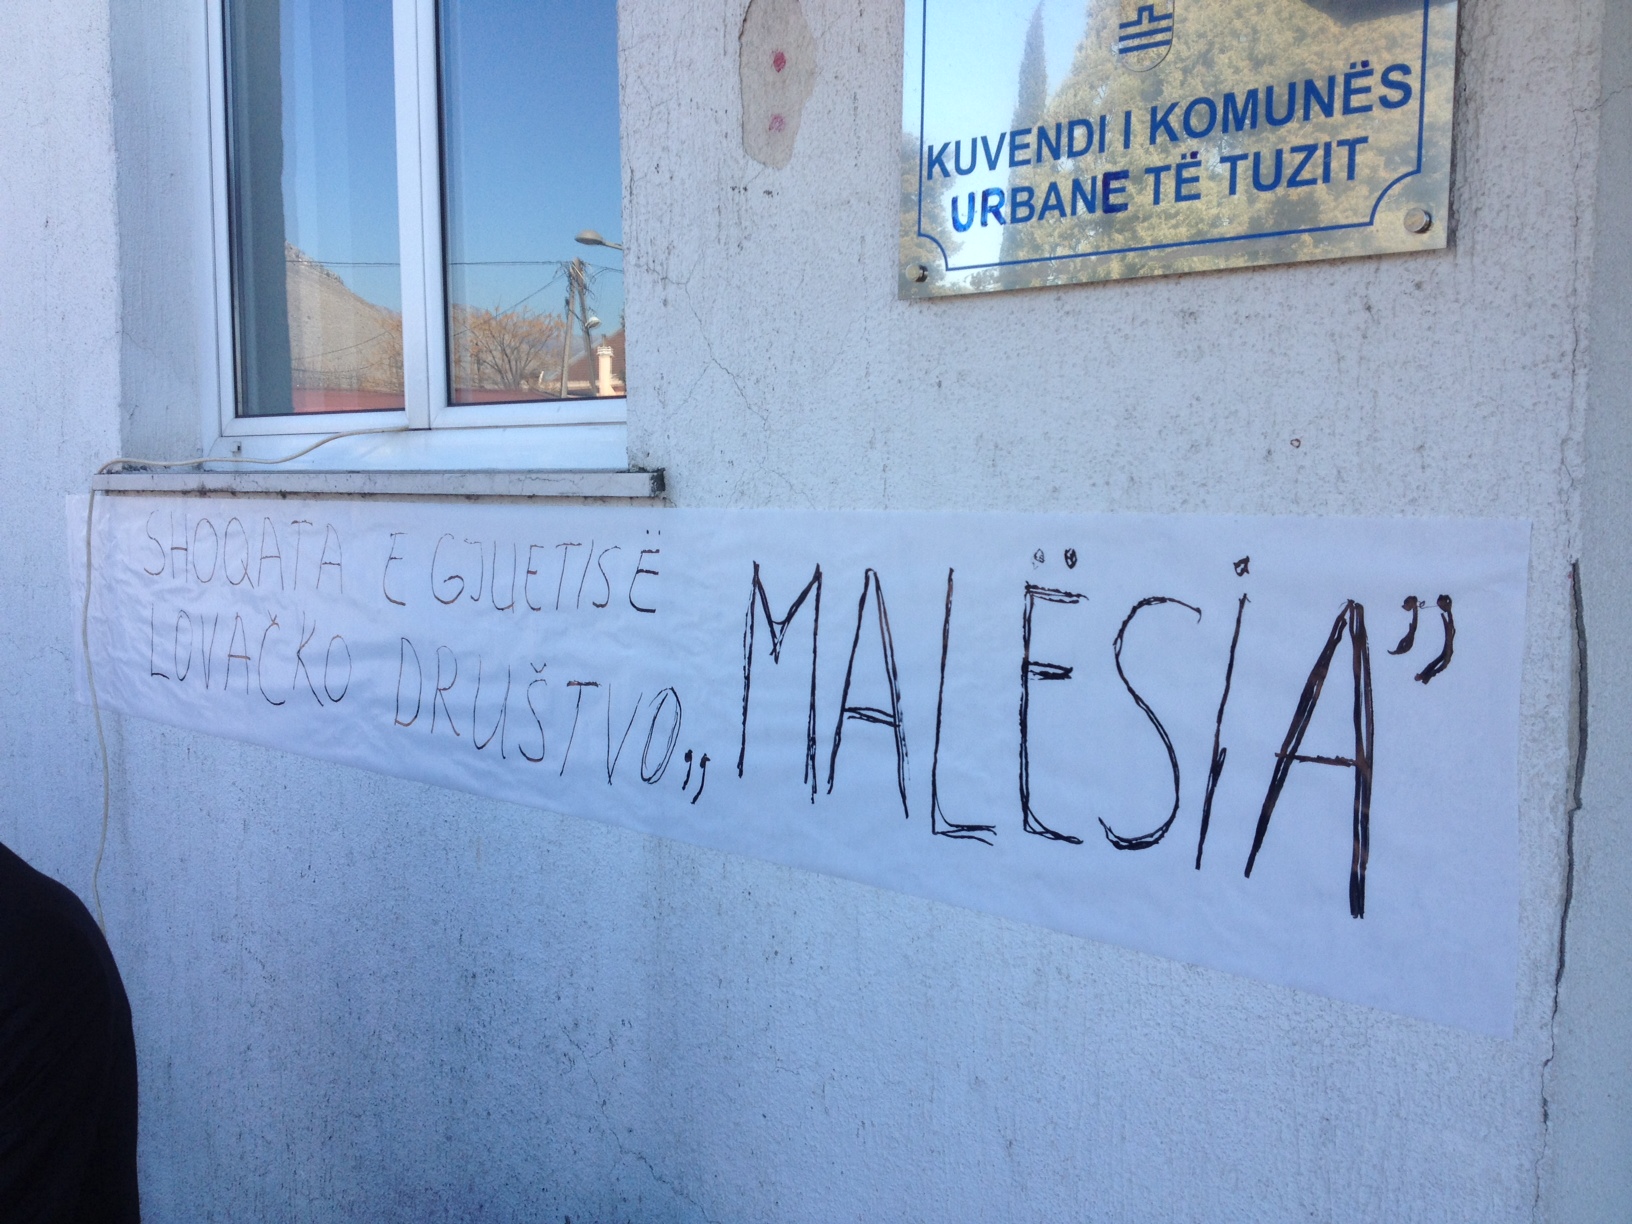 KUVENDI I KOMUNËS
URBANE TË TUZIT
SHOQATA E GJUETISË
LOVAČKO DRUŠTVO „MALËSIA”